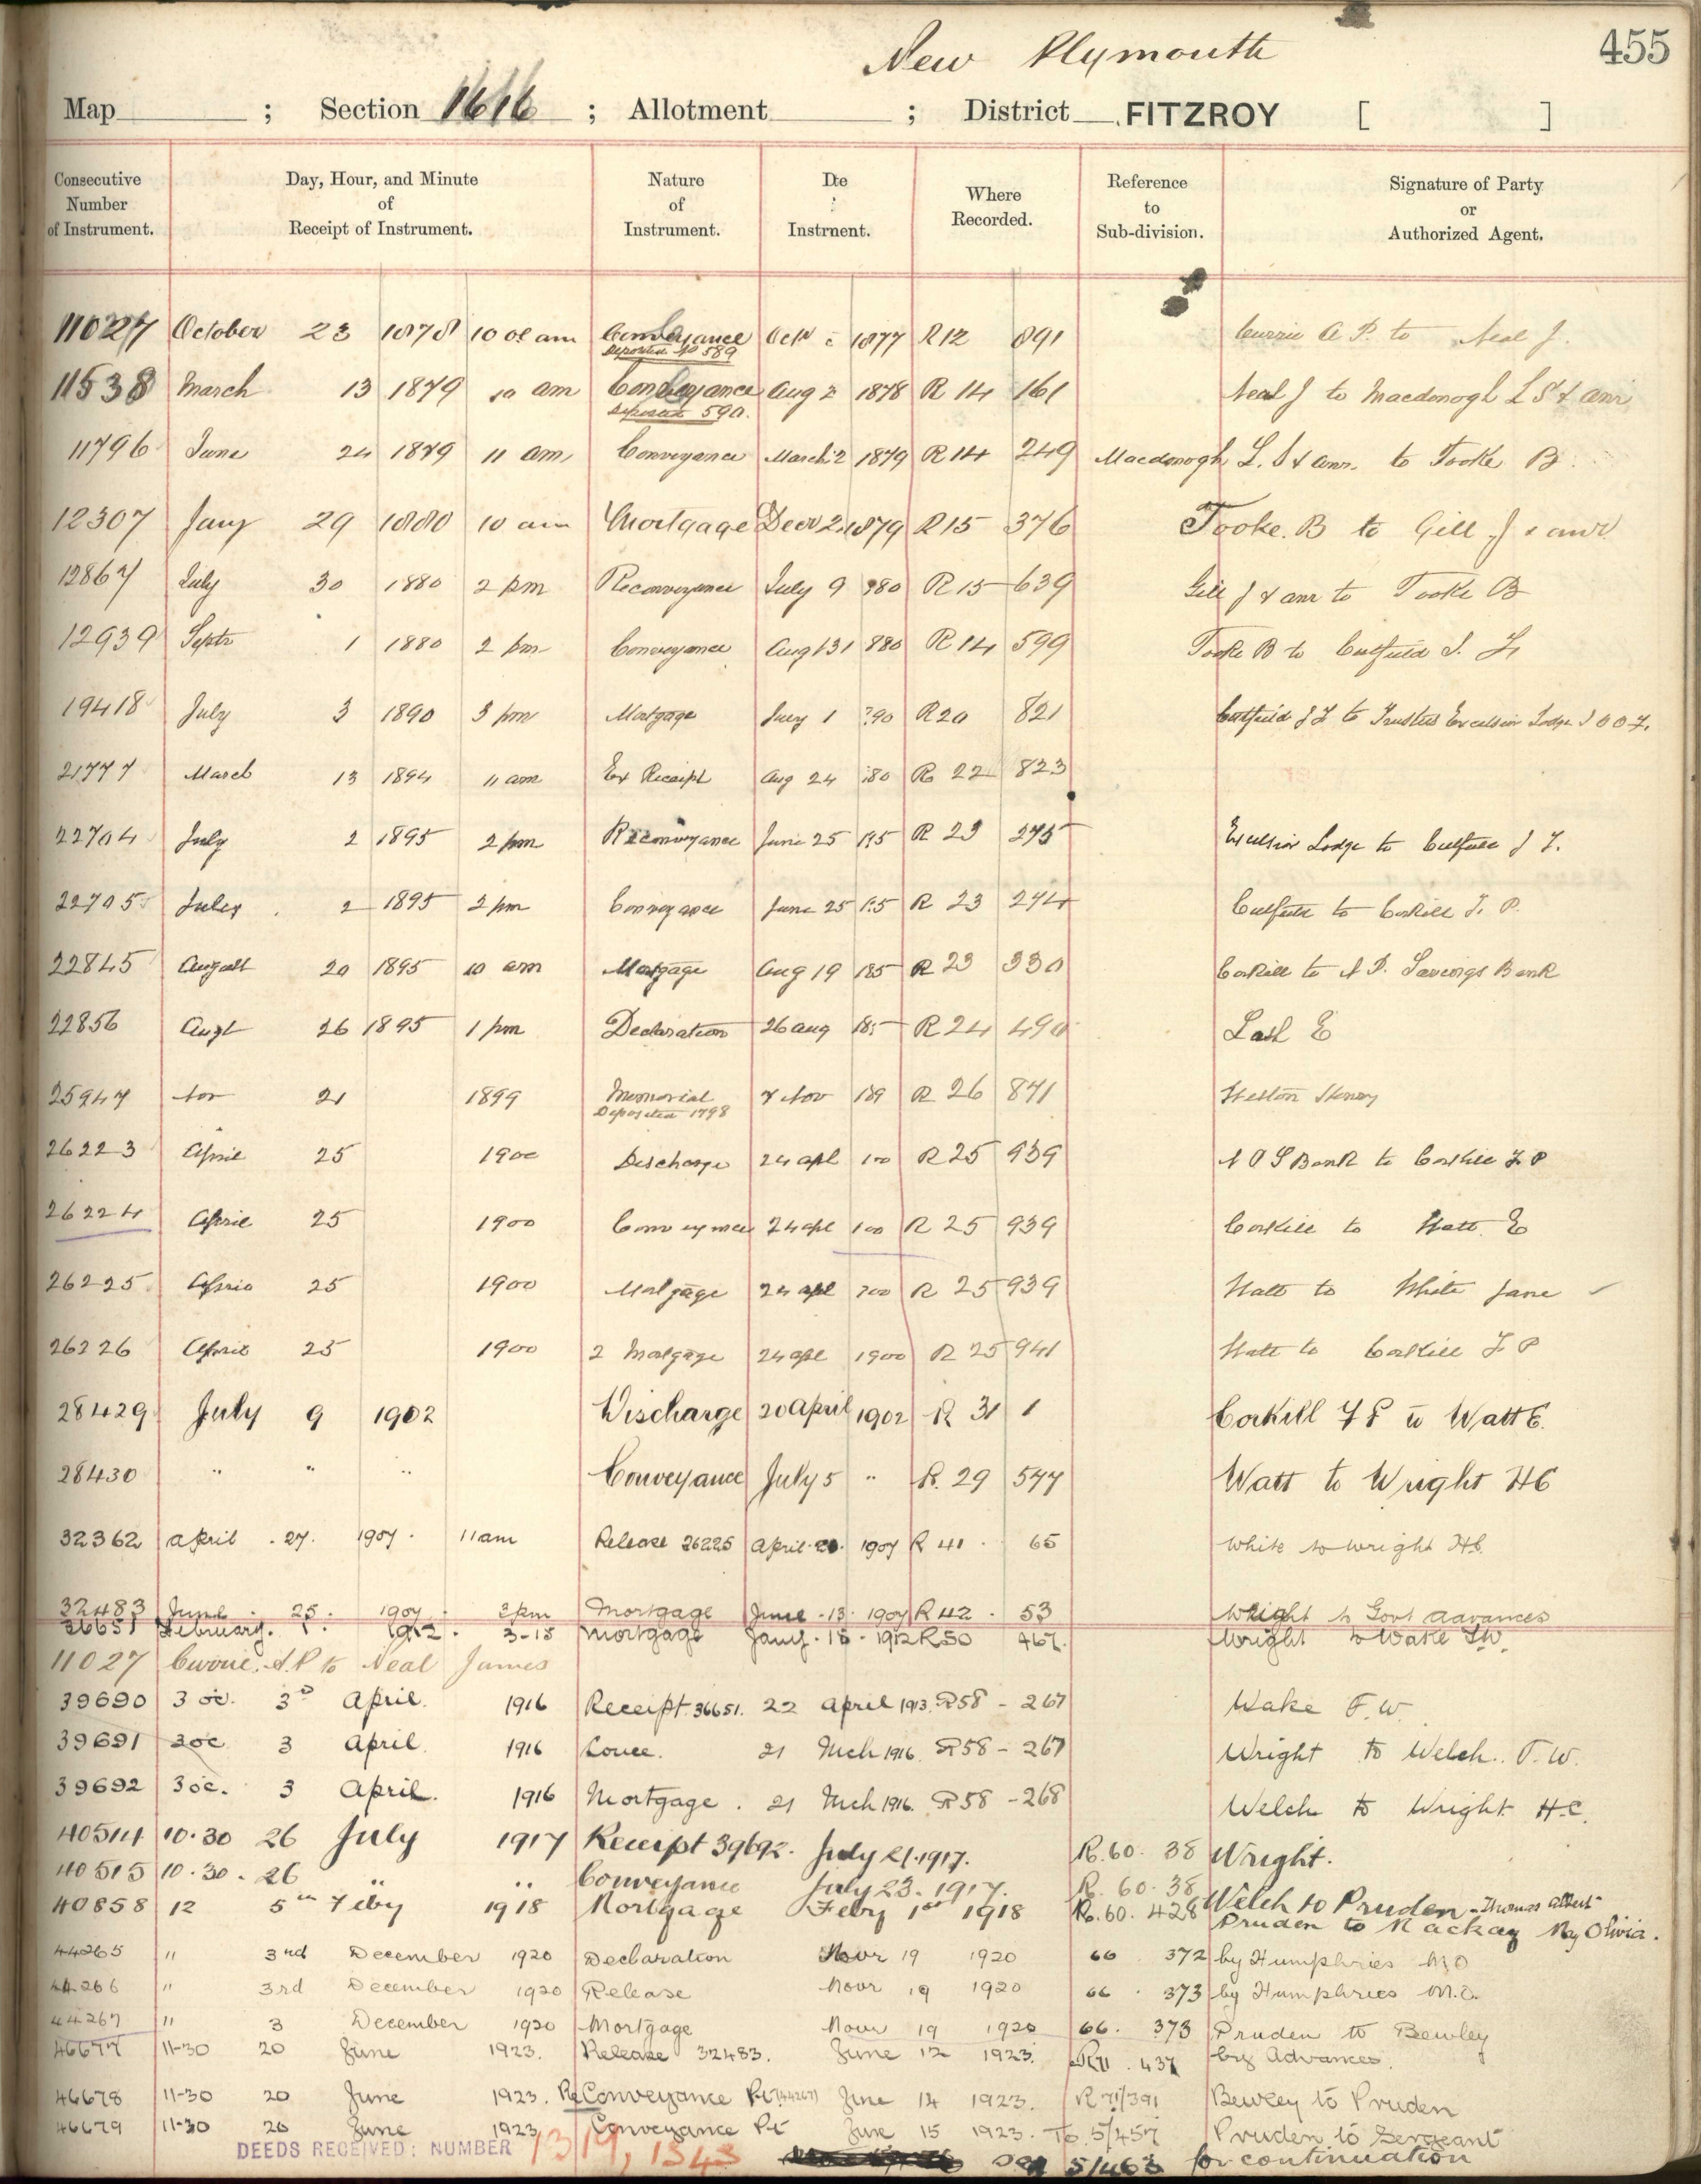 New Plymouth
455
Map ; Section 1616 ; Allotment ; District FITZROY [ ]
Consecutive Number of Instrument.
Day, Hour, and Minute of Receipt of Instrument.
Nature of Instrument.
Dte : Instrnent.
Where Recorded.
Reference to Sub-division.
Signature of Party or Authorized Agent.
11027 October 23 1878 10 am Conveyance R12 891 Currie A P. to Neal J.
Deposited No 589
11538 March 13 1879 10 am Conveyance Aug 2 1878 R 14 161 Neal J to Macdonogh L S & anr
Deposited 590.
11796 June 24 1879 11 am Conveyance March 2 1879 R 14 249 Macdonogh L. S & anr. to Tooke B.
12307 Jany 29 1880 10 am Mortgage Decr 2 1879 R15 376 Tooke. B to Gill J & anr
12867 July 30 1880 2 pm Reconveyance July 9 880 R 15 639 Gill J & anr to Tooke B
12939 Septr 1 1880 2 pm Conveyance Aug 31 880 R 14 599 Tooke B to
19418 July 3 1890 3 pm Mortgage July 1 90 R20 821 to Trustees Excelsior Lodge I O O F.
21777 March 13 1894 11 am Ex Receipt Aug 24 R 22 823
22704 July 2 1895 2 pm Reconveyance June 25 R 23 275 Excelsior Lodge to
22705 July 2 1895 2 pm Conveyance June 25 R 23 274 to Corkill F. P.
22845 August 20 1895 10 am Mortgage Aug 19 R 23 330 Corkill to N P. Savings Bank
22856 Augt 26 1895 1 pm Declaration 26 aug R 24 490 Lash E
25947 Nov 21 1899 Memorial 7 Nov R 26 871 Weston Henry
Deposited 1798
26223 April 25 1900 Discharge 24 apl R 25 939 N P S Bank to Corkill F P
26224 April 25 1900 Conveyance 24 apl R 25 939 Corkill to Watt E
26225 April 25 1900 Mortgage 24 apl R 25 939 Watt to White Jane
26226 April 25 1900 2 Mortgage 24 apl 1900 R 25 941 Watt to Corkill F P
28429 July 9 1902 Discharge 20 April 1902 R 31 1 Corkill F P to Watt E.
28430 " " " Conveyance July 5 " R. 29 577 Watt to Wright HC
32362 April 27. 1907. 11 am Release 26225 April 20. 1907 R 41. 65 White to Wright H.C.
32483 June 25. 1907. 3 pm Mortgage June 13. 1907 R 42. 53 Wright to Govt Advances
36651 February. 1. 1912. 3-15 Mortgage Jany. 18. 1912 R50 467. Wright to Wake F.W.
11027 Currie, A.P. to Neal James
39690 3 oc. 3 April. 1916 Receipt 36651. 22 April 1913. R58 - 267 Wake F.W.
39691 3 oc 3 April. 1916 Convce. 21 Mch 1916. R58 - 267 Wright to Welch. F.W.
39692 3 oc. 3 April. 1916 Mortgage. 21 Mch 1916. R58 - 268 Welch to Wright H.C.
40514 10.30 26 July 1917 Receipt 39692. July 21. 1917. R. 60. 38 Wright.
40515 10.30. 26 " " Conveyance July 23. 1917. R. 60. 38 Welch to Pruden - Thomas Albert
40858 12 5th Feby 1918 Mortgage Feby 1st 1918 R. 60. 428 Pruden to Mackay My Olivia.
44265 " 3rd December 1920 Declaration Novr 19 1920 66 372 by Humphries M.O
44266 " 3rd December 1920 Release Novr 19 1920 66. 373 by Humphries M.O.
44267 " 3 December 1920 Mortgage Novr 19 1920 66. 373 Pruden to Bewley
46677 11-30 20 June 1923. Release 32483. June 12 1923. R71. 437 by Advances.
46678 11-30 20 June 1923. ReConveyance Pt (44267) June 14 1923. R 71/391 Bewley to Pruden
46679 11-30 20 June 1923 Conveyance Pt June 15 1923. To 5/457 Pruden to Sergeant
DEEDS RECEIVED: NUMBER 1319, 1343 See 5/463 for continuation